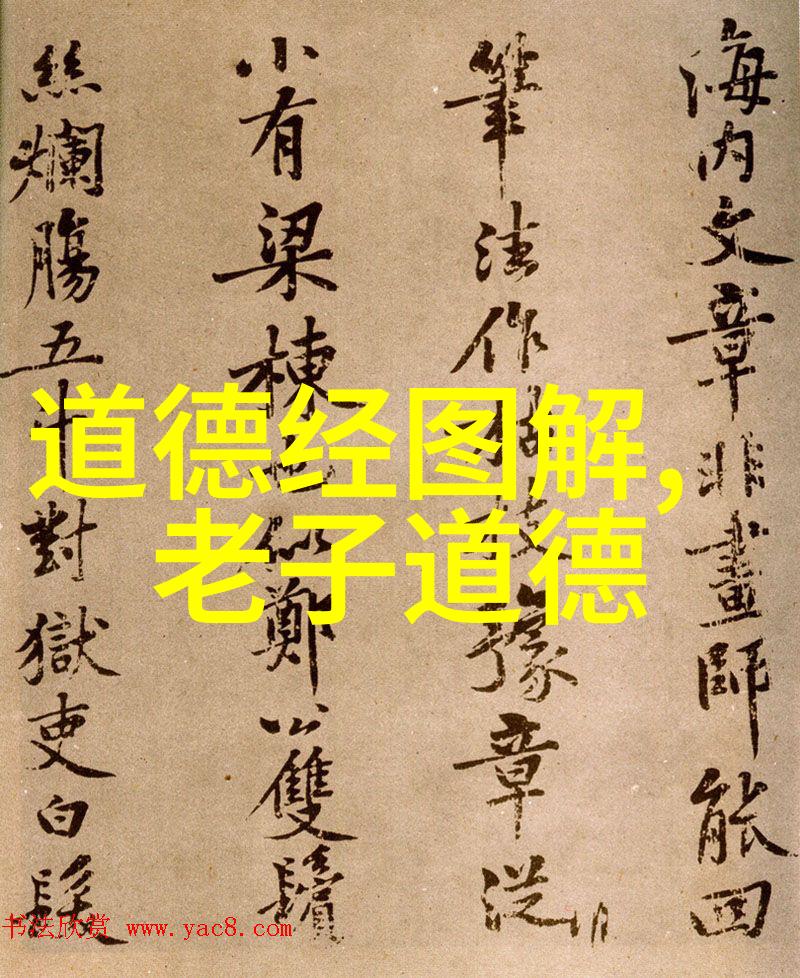 海内文章非畫師能回
筆法作枯枝豫章從
小有梁棟也似鄭公雙鬢
絲爛腸五斗對獄吏白髮
道德经图解,
老子道德
书法欣赏 www.yac8.com